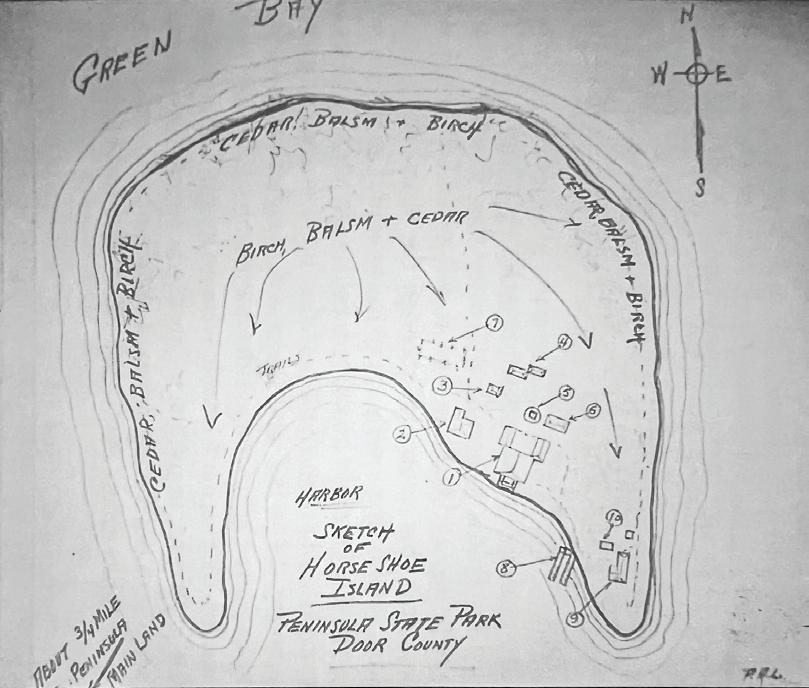 GREEN BAY
N
W E
S
CEDAR, BALSM + BIRCH
CEDAR, BALSM + BIRCH
BIRCH, BALSM + CEDAR
CEDAR, BALSM + BIRCH
TRAILS
7
4
3
5
6
2
1
10
8
9
HARBOR
SKETCH
OF
HORSE SHOE
ISLAND
PENINSULA STATE PARK
DOOR COUNTY
ABOUT 3/4 MILE
PENINSULA
MAIN LAND